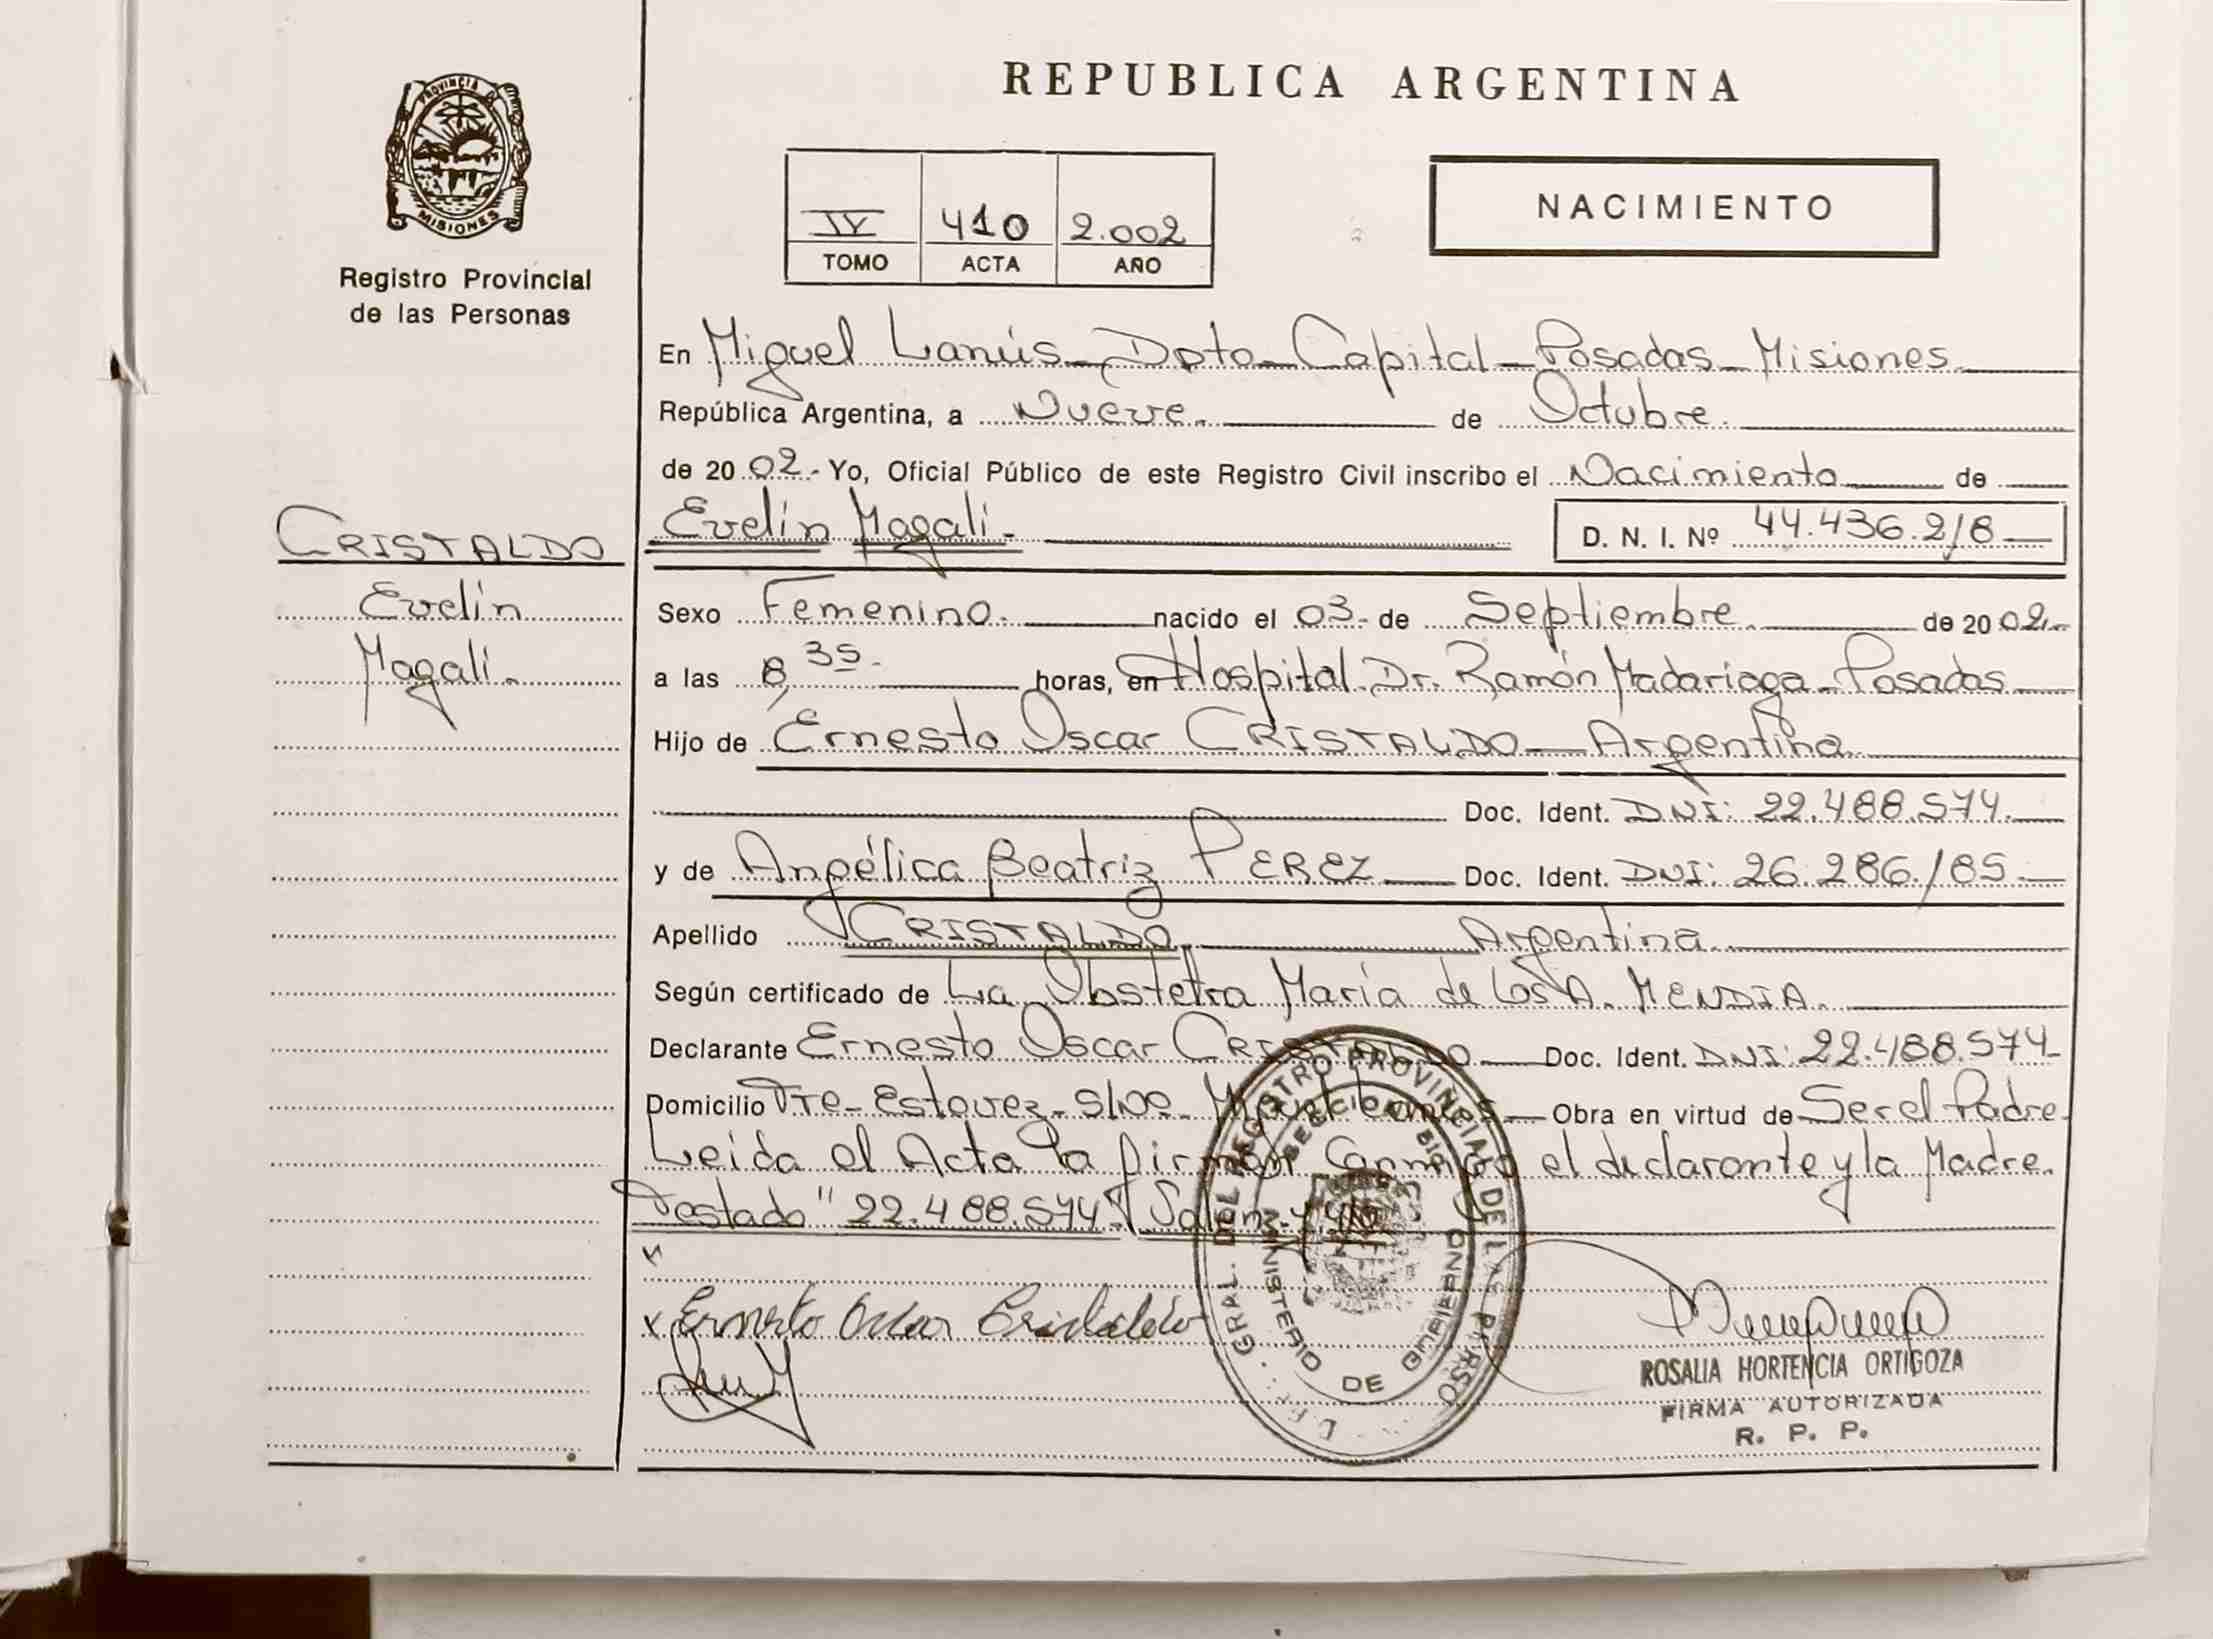 REPUBLICA ARGENTINA
PROVINCIA DE
MISIONES
Registro Provincial
de las Personas
IV 410 2.002
TOMO ACTA AÑO
NACIMIENTO
En Miguel Lanús - Dpto - Capital - Posadas - Misiones
República Argentina, a Nueve. de Octubre.
de 20 02.- Yo, Oficial Público de este Registro Civil inscribo el Nacimiento de
Evelin Magali.- D. N. I. Nº 44.436.218
CRISTALDO
Evelin
Magali.
Sexo Femenino. nacido el 03. de Septiembre. de 20 02.-
a las 8,35.- horas, en Hospital Dr. Ramón Madariaga - Posadas
Hijo de Ernesto Oscar CRISTALDO - Argentina.
Doc. Ident. DNI: 22.488.574.
y de Angélica Beatriz PEREZ Doc. Ident. DNI: 26.286.185
Apellido CRISTALDO. Argentina.
Según certificado de La Obstetra María de los A. MENDIA.
Declarante Ernesto Oscar CRISTALDO Doc. Ident. DNI: 22.488.574
Domicilio Tte - Estevez - S/Nº - Miguel Lanús Obra en virtud de Ser el Padre.
Leída el Acta la firman Conmigo el declarante y la Madre.
Testado "22.488.574"
x
x Ernesto Oscar Cristaldo
GRAL. DEL REGISTRO PROVINCIAL DE LAS PERSO
MINISTERIO DE GOBIERNO
ROSALIA HORTENCIA ORTIGOZA
FIRMA AUTORIZADA
R. P. P.